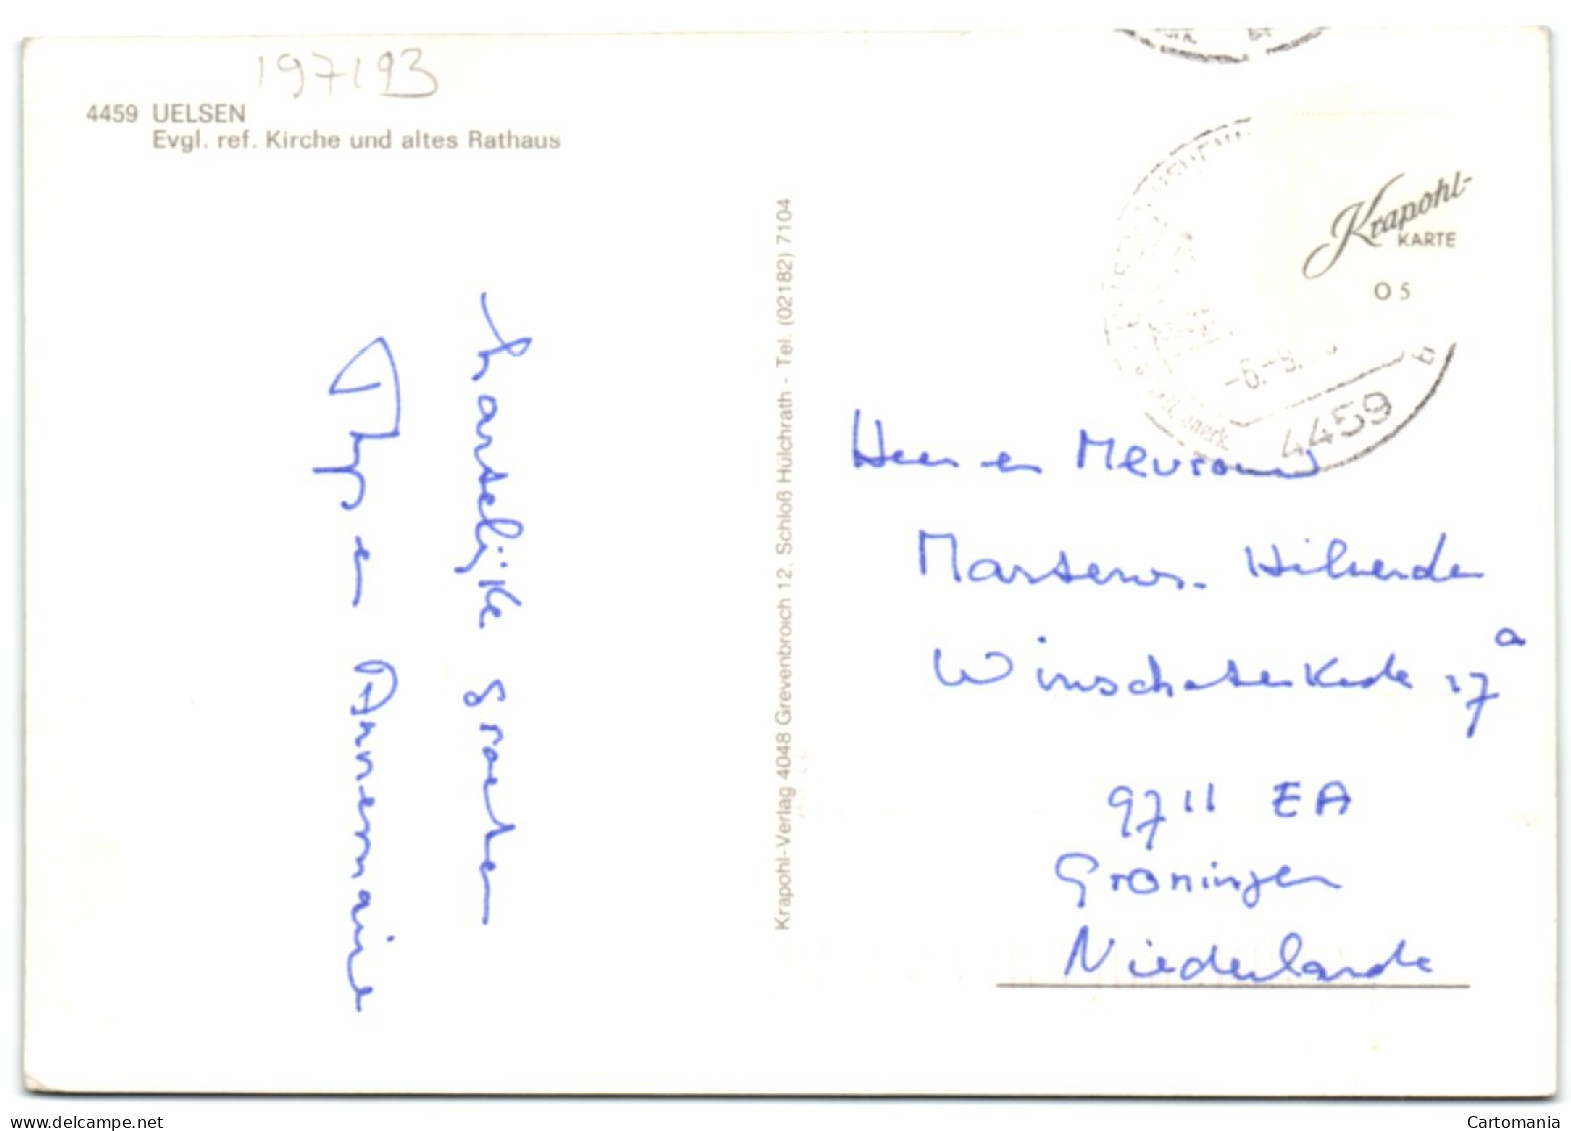 197193
4459 UELSEN
Evgl. ref. Kirche und altes Rathaus
Hartelijke groeten
en Annemarie
Krapohl-Verlag 4048 Grevenbroich 12, Schloß Hülchrath - Tel. (02182) 7104
Krapohl-
KARTE
O 5
-6.-9.
4459
Heer en Mevrouw
Martens-
Winschoterkade 17a
9711 EA
Groningen
Niederlande
delcampe.net
Cartomania